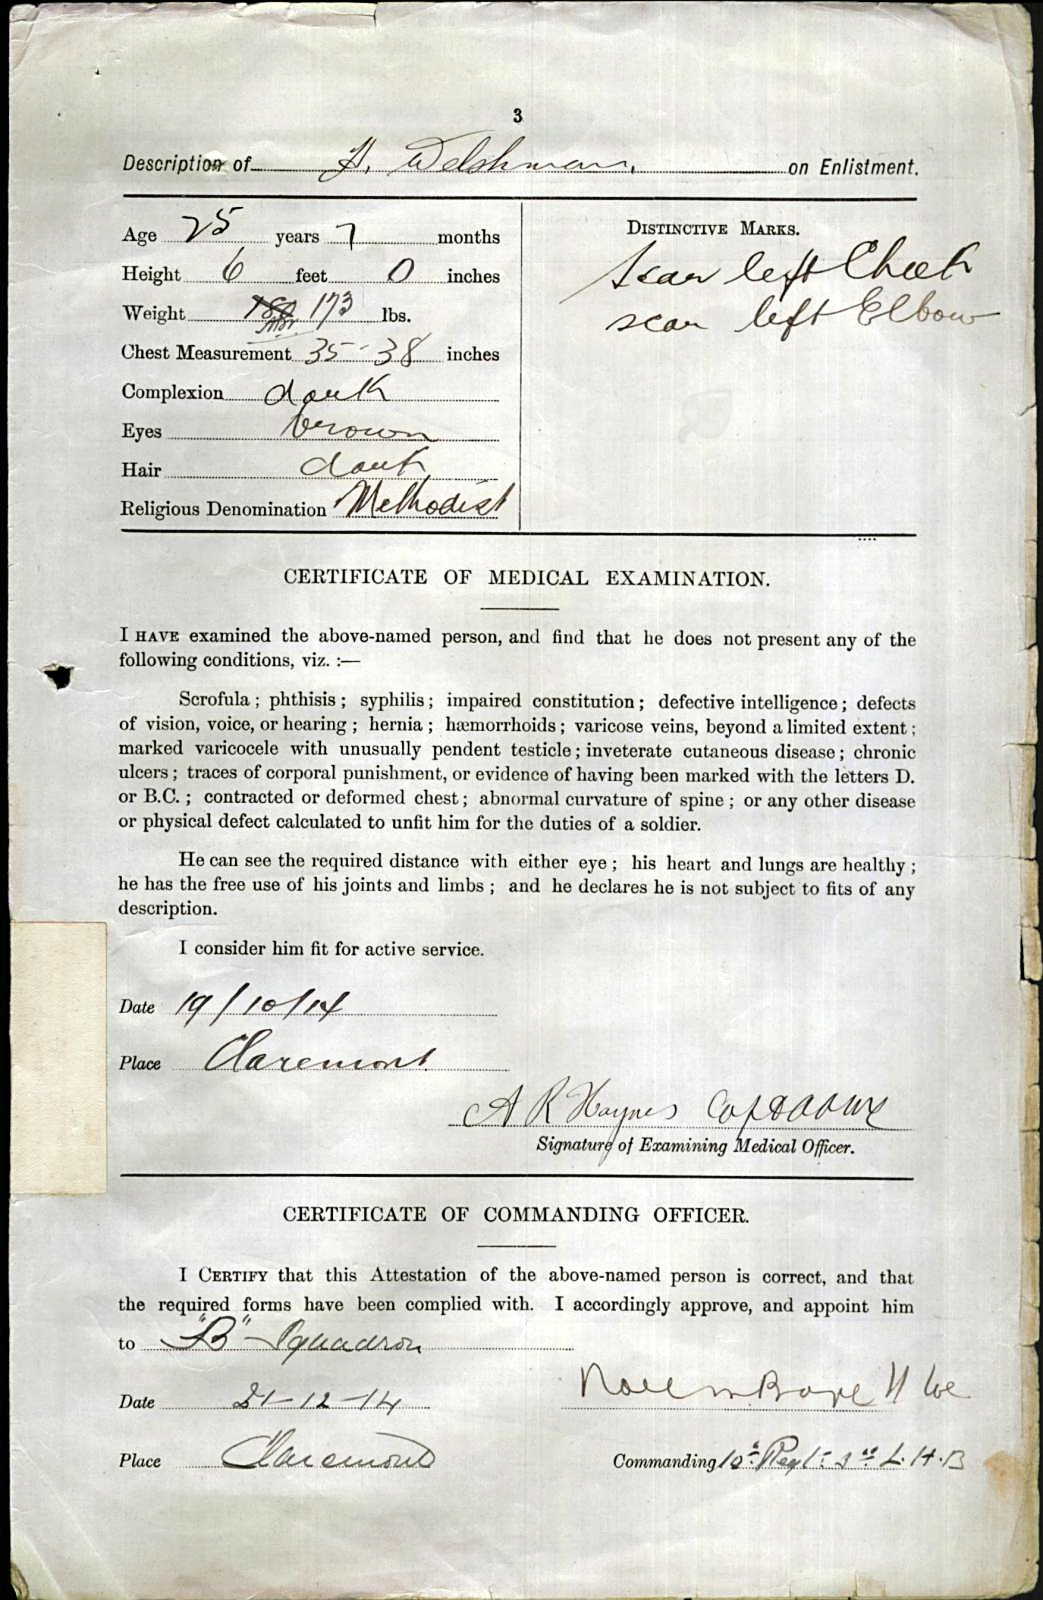 3
Description of H. Welshman. on Enlistment.
Age 25 years 7 months
Height 6 feet 0 inches
Weight 180 173 lbs.
Chest Measurement 35-38 inches
Complexion dark
Eyes brown
Hair dark
Religious Denomination Methodist
DISTINCTIVE MARKS.
Scar left Cheek
scar left Elbow
CERTIFICATE OF MEDICAL EXAMINATION.
I HAVE examined the above-named person, and find that he does not present any of the
following conditions, viz. :—
Scrofula ; phthisis ; syphilis ; impaired constitution ; defective intelligence ; defects
of vision, voice, or hearing ; hernia ; hæmorrhoids ; varicose veins, beyond a limited extent ;
marked varicocele with unusually pendent testicle ; inveterate cutaneous disease ; chronic
ulcers ; traces of corporal punishment, or evidence of having been marked with the letters D.
or B.C. ; contracted or deformed chest ; abnormal curvature of spine ; or any other disease
or physical defect calculated to unfit him for the duties of a soldier.
He can see the required distance with either eye ; his heart and lungs are healthy ;
he has the free use of his joints and limbs ; and he declares he is not subject to fits of any
description.
I consider him fit for active service.
Date 19/10/14
Place Claremont
A R Haynes Capt AAMC
Signature of Examining Medical Officer.
CERTIFICATE OF COMMANDING OFFICER.
I CERTIFY that this Attestation of the above-named person is correct, and that
the required forms have been complied with. I accordingly approve, and appoint him
to "B" Squadron
Date 21-12-14
Place Claremont
Commanding 10th Regt 3rd L.H.B